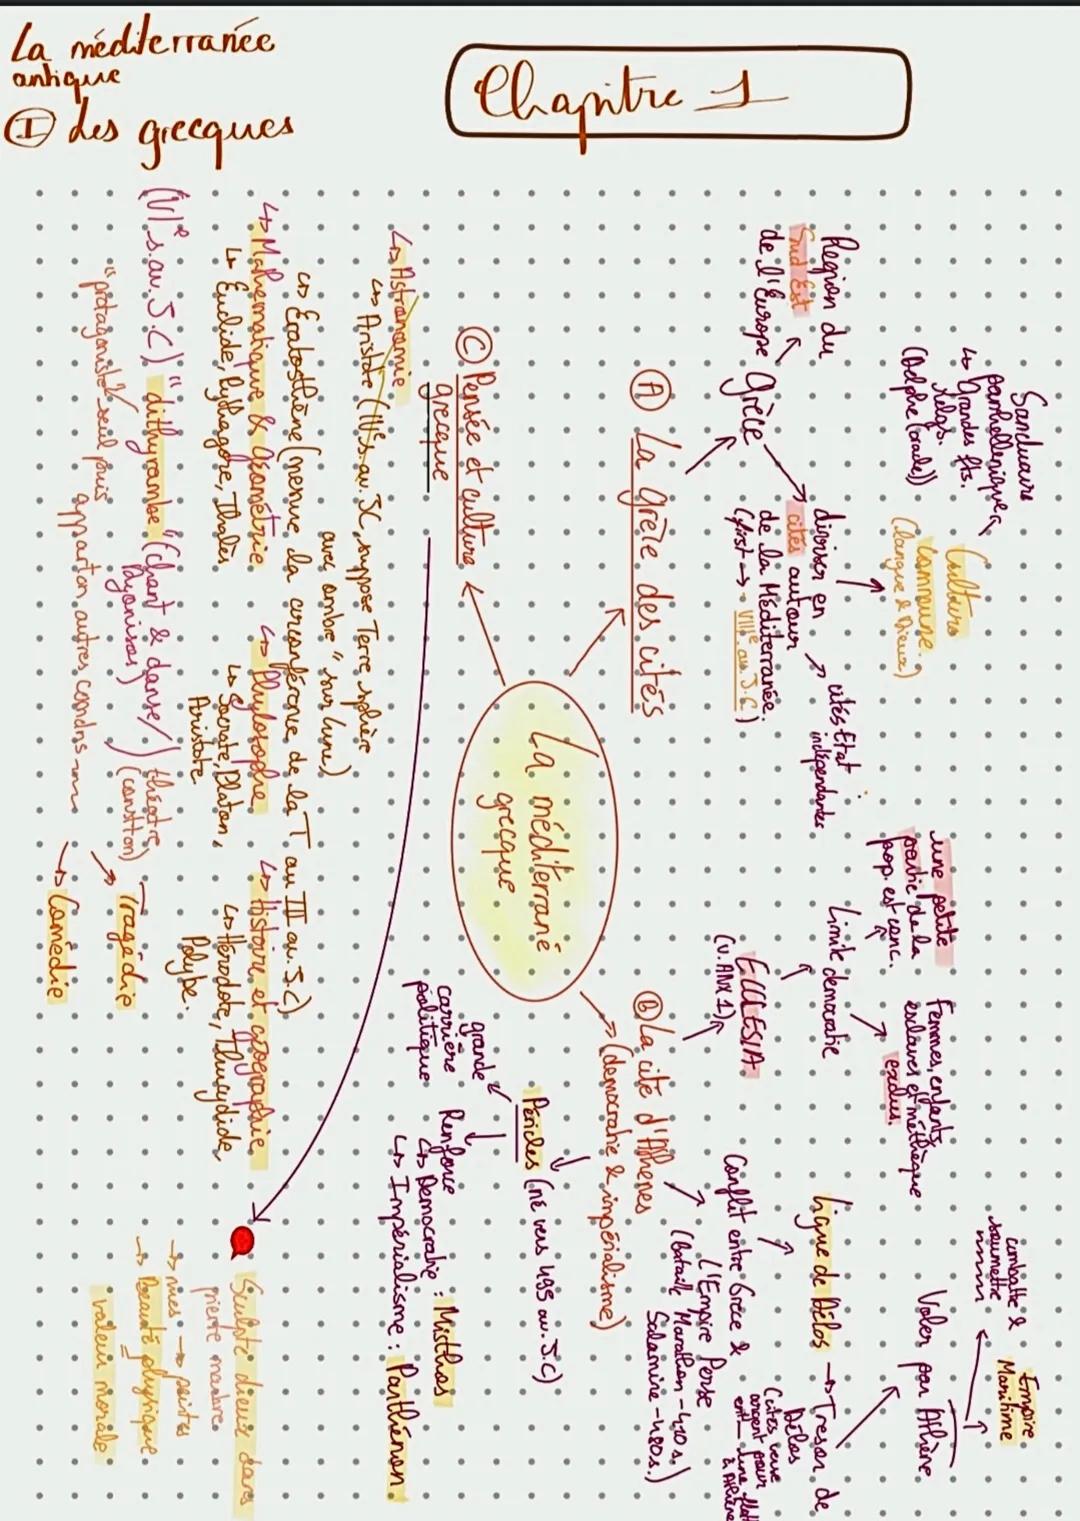 La méditerranée
antique
I des grecques
Chapitre 1
La méditerrané
grecque
A La Grèce des cités
Grèce
Region du
Sud Est
de l'Europe
diviser en
cités autour
de la Méditerranée.
VIIIe av J.C.)
cités Etat
indépendantes
Culture
commune.
(langue & Dieux)
Sanctuaire
panhelleniques
↳ Grandes fts.
relgs.
(Delphe (oracle))
B La cité d'Athènes
(democratie & impérialisme)
ECCLESIA
(v. ANX 1)
Limite democratie
une petite
partie de la
pop. est conc.
Femmes, enfants,
esclaves et méthèque
exclus.
Conflit entre Grèce &
l'Empire Perse
(bataille Marathon -490.
Salamine -480.)
ligue de Délos → Tresor de
Délos
(cités verse
argent pour
une flott
à Athène
Voler par Athère
combatte &
soumettre
Empire
Maritime
Périclès (né vers 495 av. J.C)
grande
carrière
politique
Renforce
↳ Democratie : Misthos
↳ Imperialisme : Parthénon.
C Pensée et culture
grecque
↳ Astronomie
↳ Aristote suppose Terre sphère
avec ombre" sur lune)
↳ Eratosthène (mesure la circonférence de la T au III av. J.C)
↳ Mathematique & Géométrie
↳ Euclide, Pythagore, Thalès
↳ Phylosophe
↳ Socrate, Platon,
Aristote
↳ Histoire et géographie
↳ Hérodote, Thucydide,
Polybe.
(VIe s. av. J.C) "dithyrambe" (chant & danse/
Dyonisos)
théatre
"protagoniste" seul puis
appartion autres comdns
→ Tragédie
→ Comédie
Sculpte dieux dans
pierre marbre
→ nues → peintes
→ Beauté physique
=
valeur morale